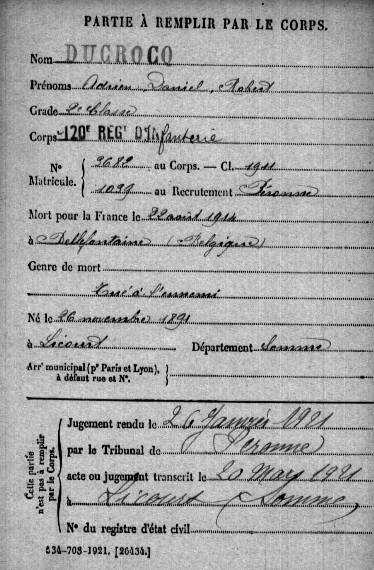 PARTIE À REMPLIR PAR LE CORPS.
Nom DUCROCQ
Prénoms Adrien, Daniel, Robert
Grade 2e Classe
Corps 120e REGt D'Infanterie
N° Matricule. { 3682 au Corps. — Cl. 1911
1099 au Recrutement Péronne
Mort pour la France le 22 août 1914
à Bellefontaine (Belgique)
Genre de mort
Tué à l'ennemi
Né le 26 novembre 1891
à Licourt Département Somme
Arrt municipal (pr Paris et Lyon), à défaut rue et N°. }
Cette partie n'est pas à remplir par le Corps.
Jugement rendu le 26 Janvier 1921
par le Tribunal de Péronne
acte ou jugement transcrit le 20 Mars 1921
à Licourt (Somme)
N° du registre d'état civil
534-708-1921. [26434.]